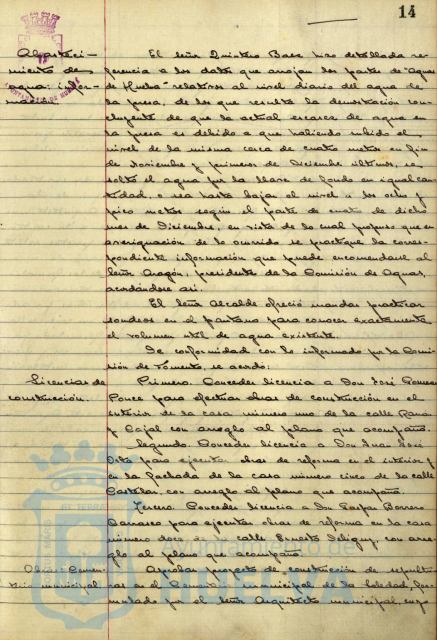 14
Abasteci-
miento de
agua: infor-
mación.
El Señor Quintero Baez hizo detallada re-
ferencia a los datos que arrojan los partes de "Aguas
de Huelva" relativos al nivel diario del agua de
la presa, de los que resulta la demostración con-
cluyente de que la actual escasez de agua en
la presa es debido a que habiendo subido el
nivel de la misma cerca de cuatro metros en fin
de Noviembre y primeros de Diciembre últimos, se
soltó el agua por la llave de fondo en igual can-
tidad, o sea hasta bajar el nivel a los ocho y
pico metros según el parte de cuatro de dicho
mes de Diciembre, en vista de lo cual propuso que en
averiguación de lo ocurrido se practique la corres-
pondiente información que puede encomendarse al
Señor Aragón, presidente de la Comisión de Aguas,
acordándose así.
El Señor Alcalde ofreció mandar practicar
sondeos en el pantano para conocer exactamente
el volumen útil de agua existente.
De conformidad con lo informado por la Comi-
sión de Fomento, se acordó:
Licencias de
construcción.
Primero. Conceder licencia a Don José
Ponce para efectuar obras de construcción en el
interior de la casa número uno de la calle Ramón
y Cajal con arreglo al plano que acompaña.
Segundo. Conceder licencia a Don Juan José
para ejecutar obras de reforma en el interior y
en la fachada de la casa número cinco de la calle
Castelar, con arreglo al plano que acompaña.
Tercero. Conceder licencia a Don Borrero
Carrasco para ejecutar obras de reforma en la casa
número doce de la calle Ernesto Deligny, con arre-
glo al plano que acompaña.
Obras: Cemen-
terio municipal.
Aprobar proyecto de construcción de sepultu-
ras en el Cementerio municipal de la Soledad, for-
mulado por el Señor Arquitecto municipal, cuyo